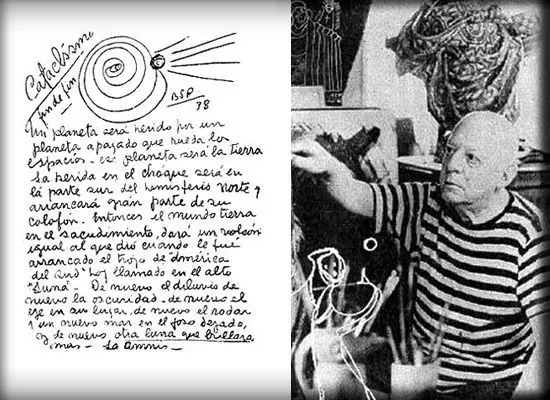 Cataclismo
fin de fin
BSP
38
Un planeta será herido por un
planeta apagado que rueda los
espacios - es planeta será la tierra
La herida en el choque será en
la parte sur del hemisferio norte y
arrancará gran parte de su
colofón. Entonces el mundo tierra
en el sacudimiento, dará un volcón
igual al que dió cuando le fué
arrancado el trozo de "América
del Sud" hoy llamado en el alto
"Luna" - De nuevo el diluvio de
nuevo la oscuridad - de nuevo el
eje en su lugar, de nuevo el rodar
y un nuevo mar en el foso dejado,
y de nuevo otra luna que brillara
mas -